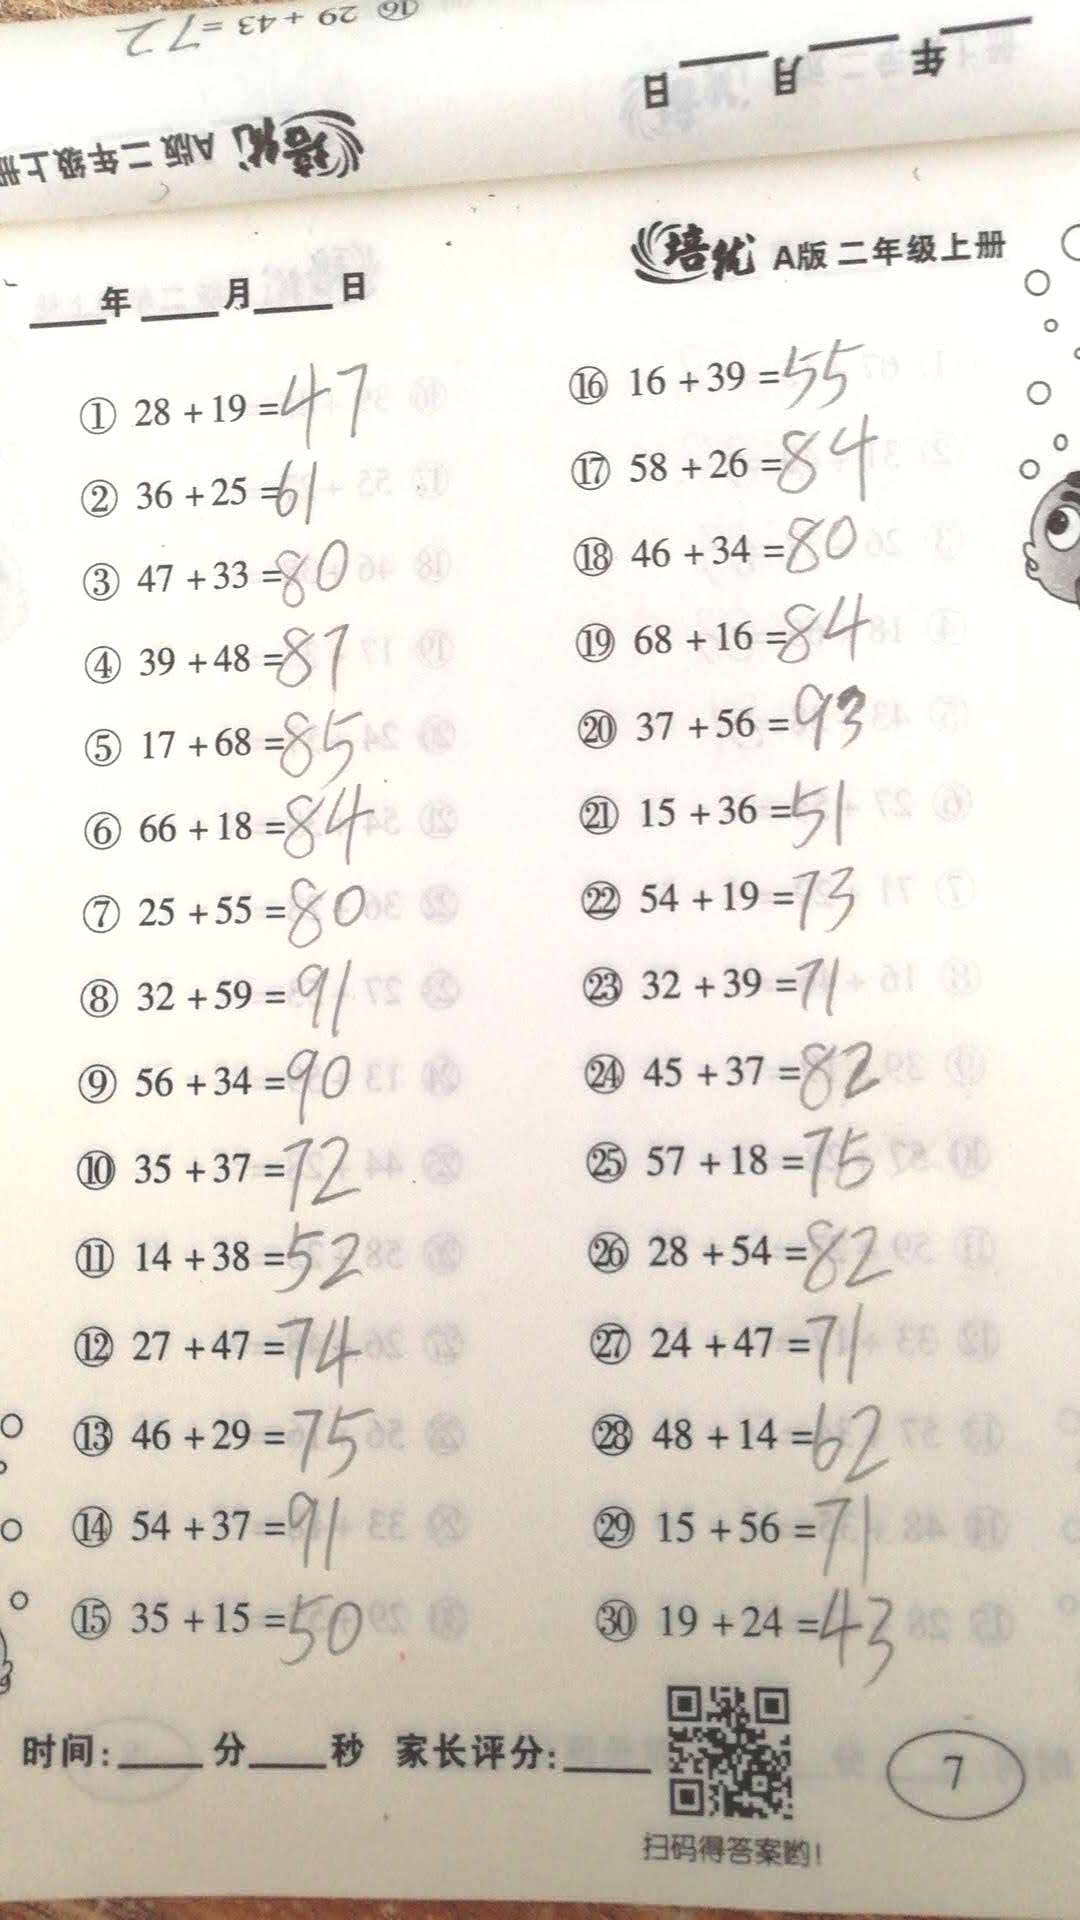 ⑯ 29 + 43 = 72
年 月 日
培优 A版 二年级上册
培优 A版 二年级上册
年 月 日
① 28 + 19 = 47
② 36 + 25 = 61
③ 47 + 33 = 80
④ 39 + 48 = 87
⑤ 17 + 68 = 85
⑥ 66 + 18 = 84
⑦ 25 + 55 = 80
⑧ 32 + 59 = 91
⑨ 56 + 34 = 90
⑩ 35 + 37 = 72
⑪ 14 + 38 = 52
⑫ 27 + 47 = 74
⑬ 46 + 29 = 75
⑭ 54 + 37 = 91
⑮ 35 + 15 = 50
⑯ 16 + 39 = 55
⑰ 58 + 26 = 84
⑱ 46 + 34 = 80
⑲ 68 + 16 = 84
⑳ 37 + 56 = 93
㉑ 15 + 36 = 51
㉒ 54 + 19 = 73
㉓ 32 + 39 = 71
㉔ 45 + 37 = 82
㉕ 57 + 18 = 75
㉖ 28 + 54 = 82
㉗ 24 + 47 = 71
㉘ 48 + 14 = 62
㉙ 15 + 56 = 71
㉚ 19 + 24 = 43
时间: 分 秒 家长评分:
扫码得答案哟!
7